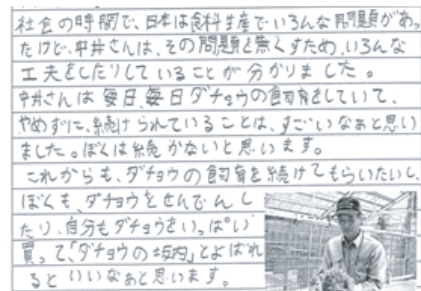 社会の時間で、日本は食料生産でいろんな問題があっ
たけど、中井さんは、その問題を無くすため、いろんな
工夫をしたりしていることが分かりました。
中井さんは毎日、毎日ダチョウの飼育をしていて、
やめずに、続けられていることは、すごいなぁと思い
ました。ぼくは続かないと思います。
これからも、ダチョウの飼育を続けてもらいたいし、
ぼくも、ダチョウをせんでんし
たり、自分もダチョウをいっぱい
買って、「ダチョウの坂内」とよばれ
るといいなぁと思います。